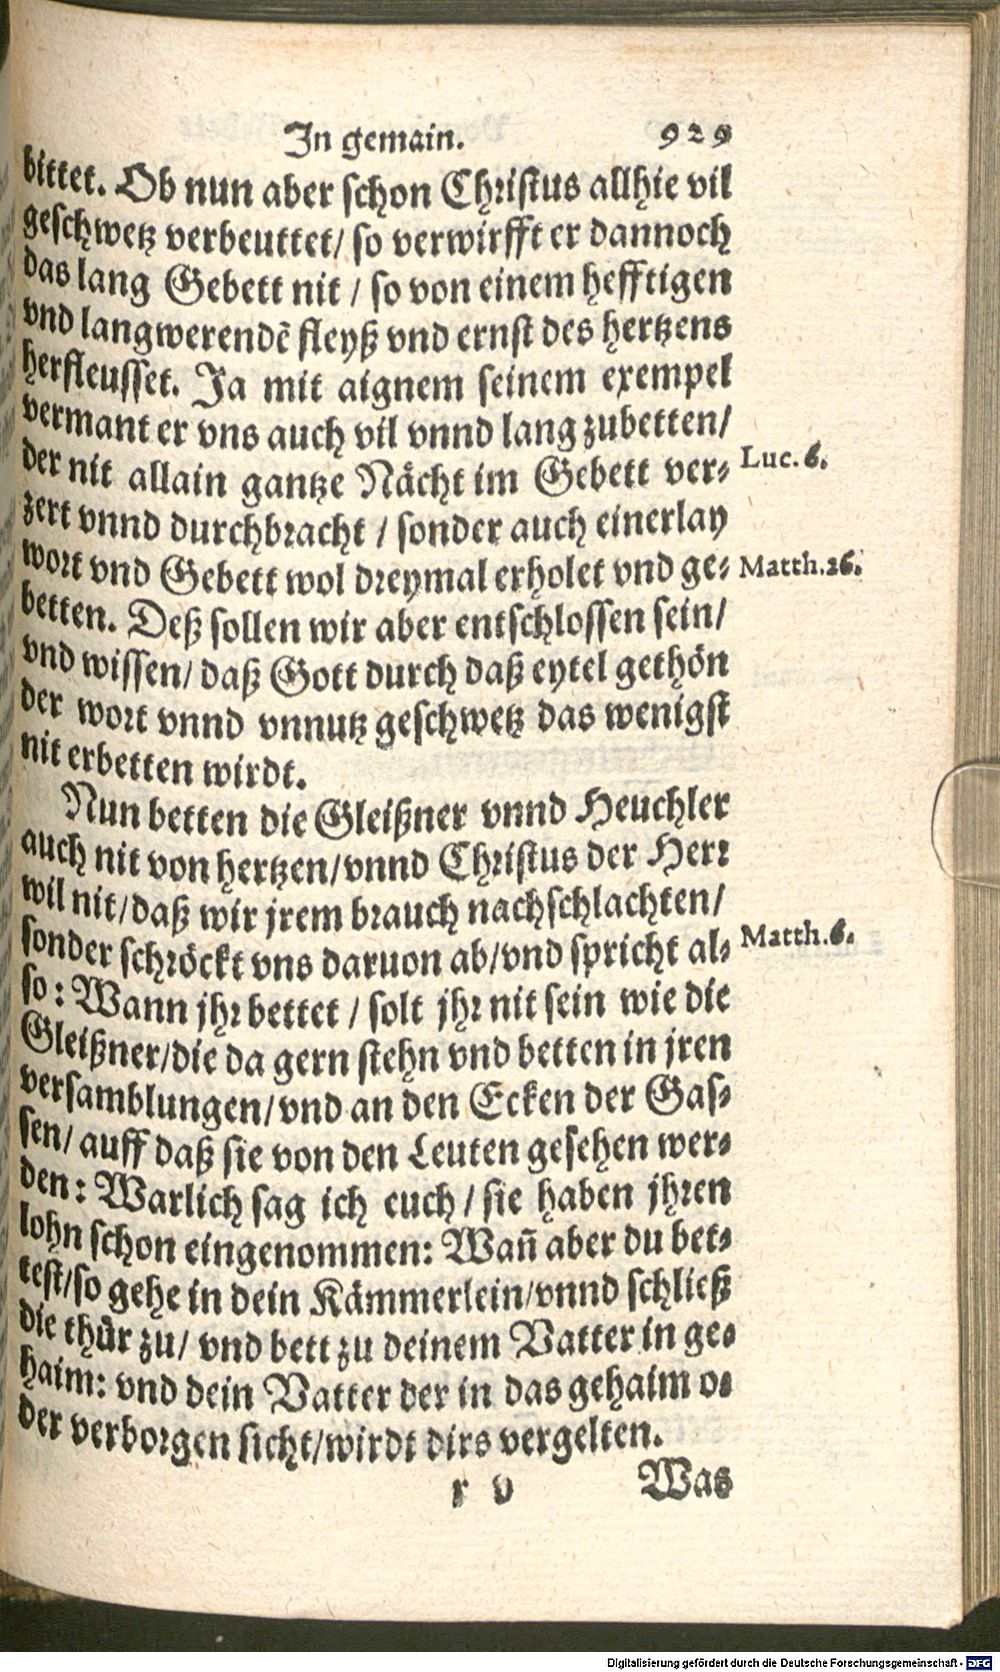 In gemain. 929
bittet. Ob nun aber schon Christus allhie vil
geschwetz verbeuttet/ so verwirfft er dannoch
das lang Gebett nit / so von einem hefftigen
vnd langwerendẽ fleyß vnd ernst des hertzens
herfleusset. Ja mit aignem seinem exempel
vermant er vns auch vil vnnd lang zubetten/
der nit allain gantze Nächt im Gebett ver-
Luc. 6.
zert vnnd durchbracht / sonder auch einerlay
wort vnd Gebett wol dreymal erholet vnd ge-
Matth.26.
betten. Deß sollen wir aber entschlossen sein/
vnd wissen/ daß Gott durch daß eytel gethön
der wort vnnd vnnutz geschwetz das wenigst
nit erbetten wirdt.
Nun betten die Gleißner vnnd Heuchler
auch nit von hertzen/vnnd Christus der Herr
wil nit/daß wir jrem brauch nachschlachten/
sonder schröckt vns daruon ab/vnd spricht al-
Matth.6.
so: Wann jhr bettet / solt jhr nit sein wie die
Gleißner/die da gern stehn vnd betten in jren
versamblungen/vnd an den Ecken der Gas-
sen/ auff daß sie von den Leuten gesehen wer-
den: Warlich sag ich euch / sie haben jhren
lohn schon eingenommen: Wañ aber du bet-
test/so gehe in dein Kämmerlein/vnnd schließ
die thür zu/ vnd bett zu deinem Vatter in ge-
haim: vnd dein Vatter der in das gehaim o-
der verborgen sicht/wirdt dirs vergelten.
r v Was
Digitalisierung gefördert durch die Deutsche Forschungsgemeinschaft - DFG